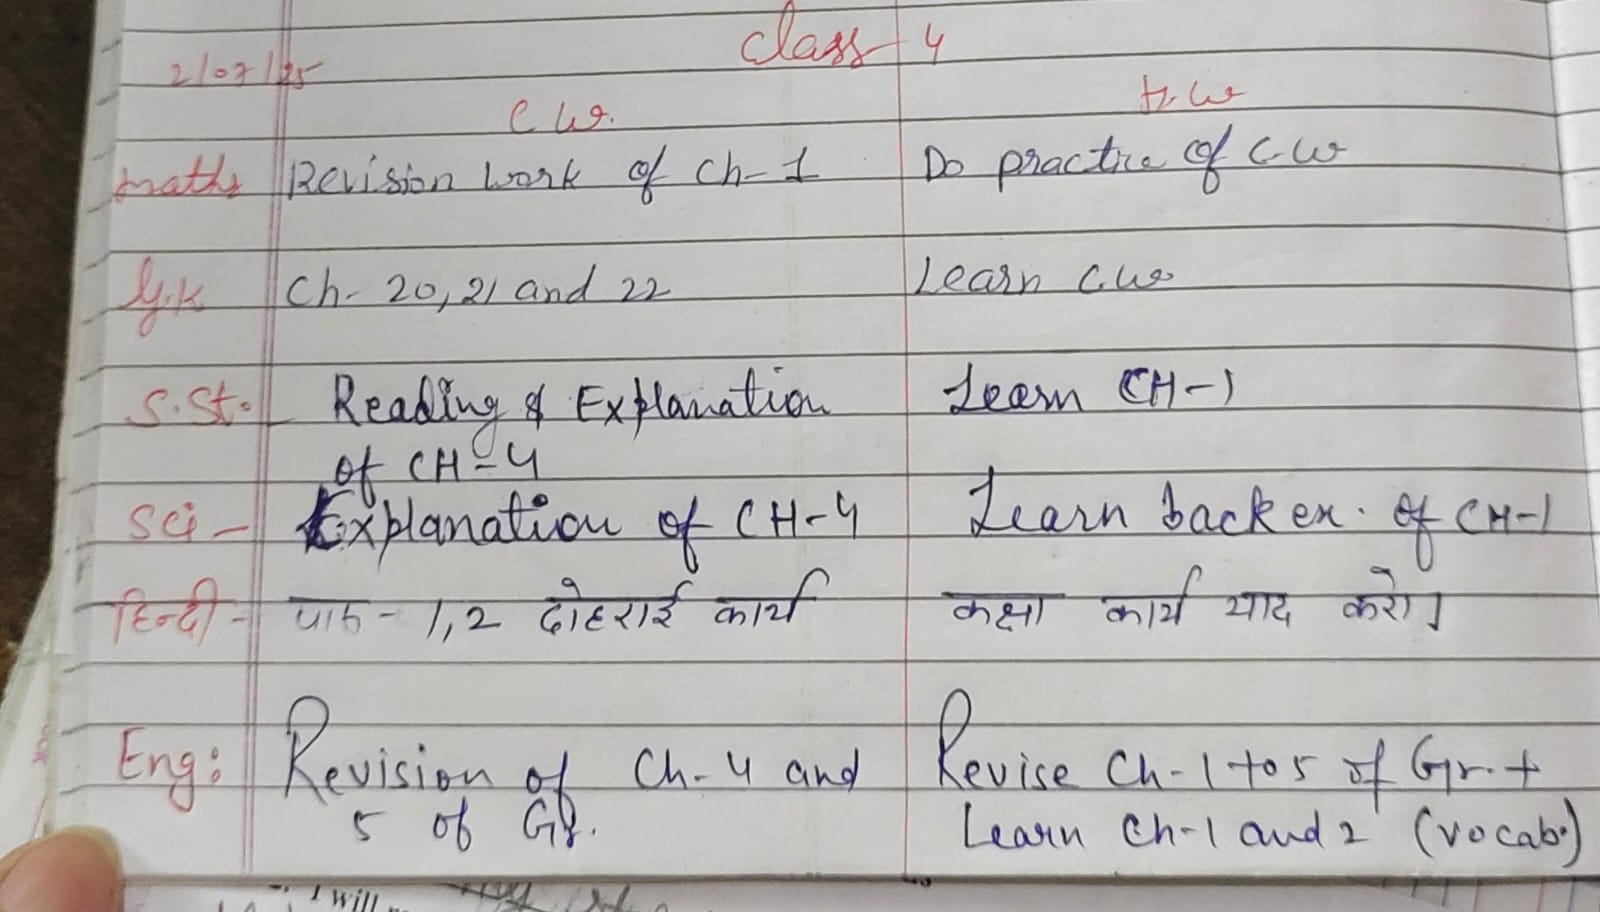 Class 4
2/07/25
C.W. H.W
Maths Revision work of Ch-1 Do practice of C.W
G.K Ch- 20, 21 and 22 Learn C.W
S.St. Reading & Explanation Learn CH-1
of CH-4
Sci - Explanation of CH-4 Learn back ex. of CH-1
हिन्दी - पाठ - 1,2 दोहराई कार्य कक्षा कार्य याद करो।
Eng: Revision of Ch-4 and Revise Ch-1 to 5 of Gr. +
5 of Gr. Learn Ch-1 and 2 (vocab.)
I will